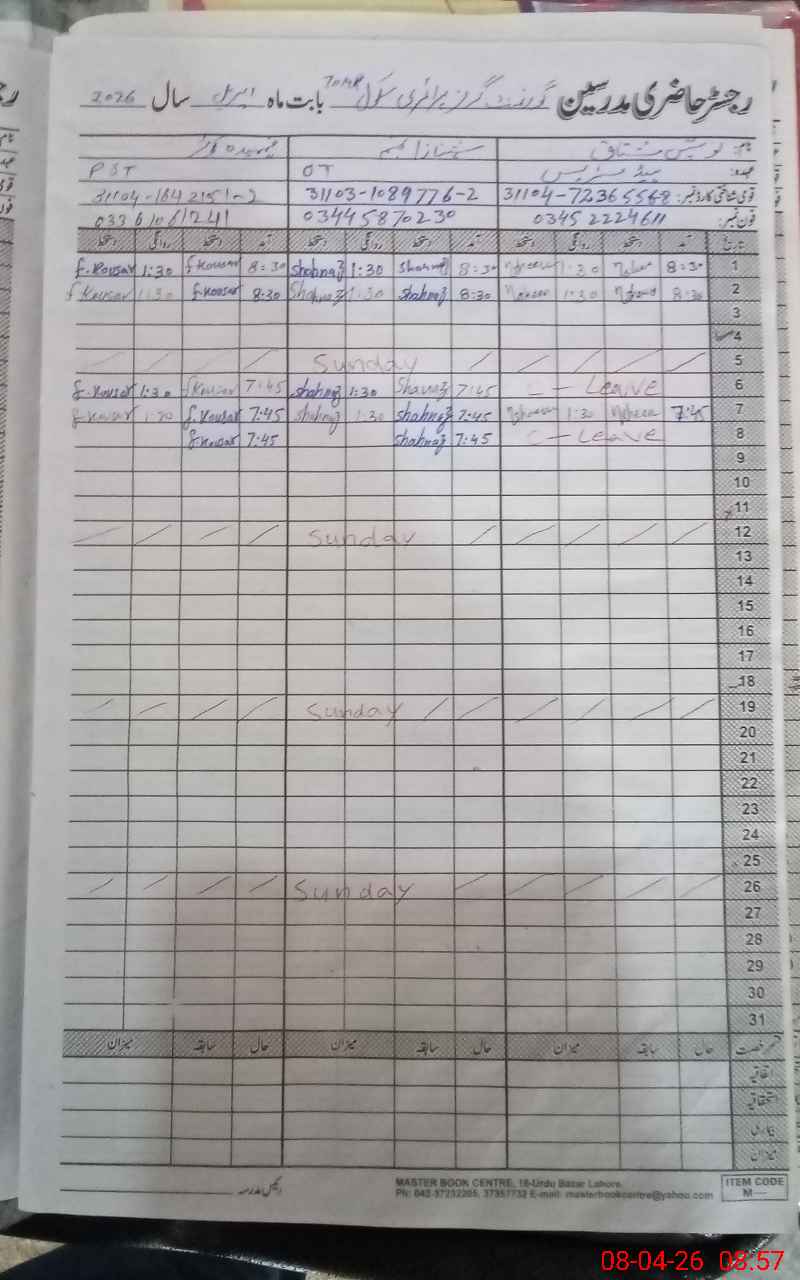 رجسٹر حاضری مدرسین گورنمنٹ گرلز پرائمری سکول 70MR بابت ماہ اپریل سال 2026
نام: شہناز انجم
عہدہ: ہیڈ مسٹریس OT PST
قومی شناختی کارڈ نمبر: 31103-1089776-2
فون نمبر: 0345 2224611 03445870230 03361061241
تاریخ آمد دستخط روانگی دستخط آمد دستخط روانگی دستخط آمد دستخط روانگی دستخط
1 8:30 1:30 8:30 Shahnaz 1:30 Shahnaz 8:30 f.Kousar 1:30 f.Kousar
2 8:30 1:30 8:30 Shahnaz 1:30 Shahnaz 8:30 f.Kousar 1:30 f.Kousar
3
4
5 Sunday
6 C-Leave 7:45 Shahnaz 1:30 Shahnaz 7:45 f.Kousar 1:30 f.Kousar
7 7:45 1:30 7:45 Shahnaz 1:30 Shahnaz 7:45 f.Kousar 1:30 f.Kousar
8 C-Leave 7:45 Shahnaz 7:45 f.Kousar
9
10
11
12 Sunday
13
14
15
16
17
18
19 Sunday
20
21
22
23
24
25
26 Sunday
27
28
29
30
31
قسم رخصت حال سابقہ میزان حال سابقہ میزان حال سابقہ میزان
اتفاقیہ
استحقاقیہ
بیماری
میزان
رئیس مدرسہ
MASTER BOOK CENTRE, 16-Urdu Bazar Lahore.
Ph: 042-37232205, 37357732 E-mail: masterbookcentre@yahoo.com
ITEM CODE
M—
08-04-26 08:57